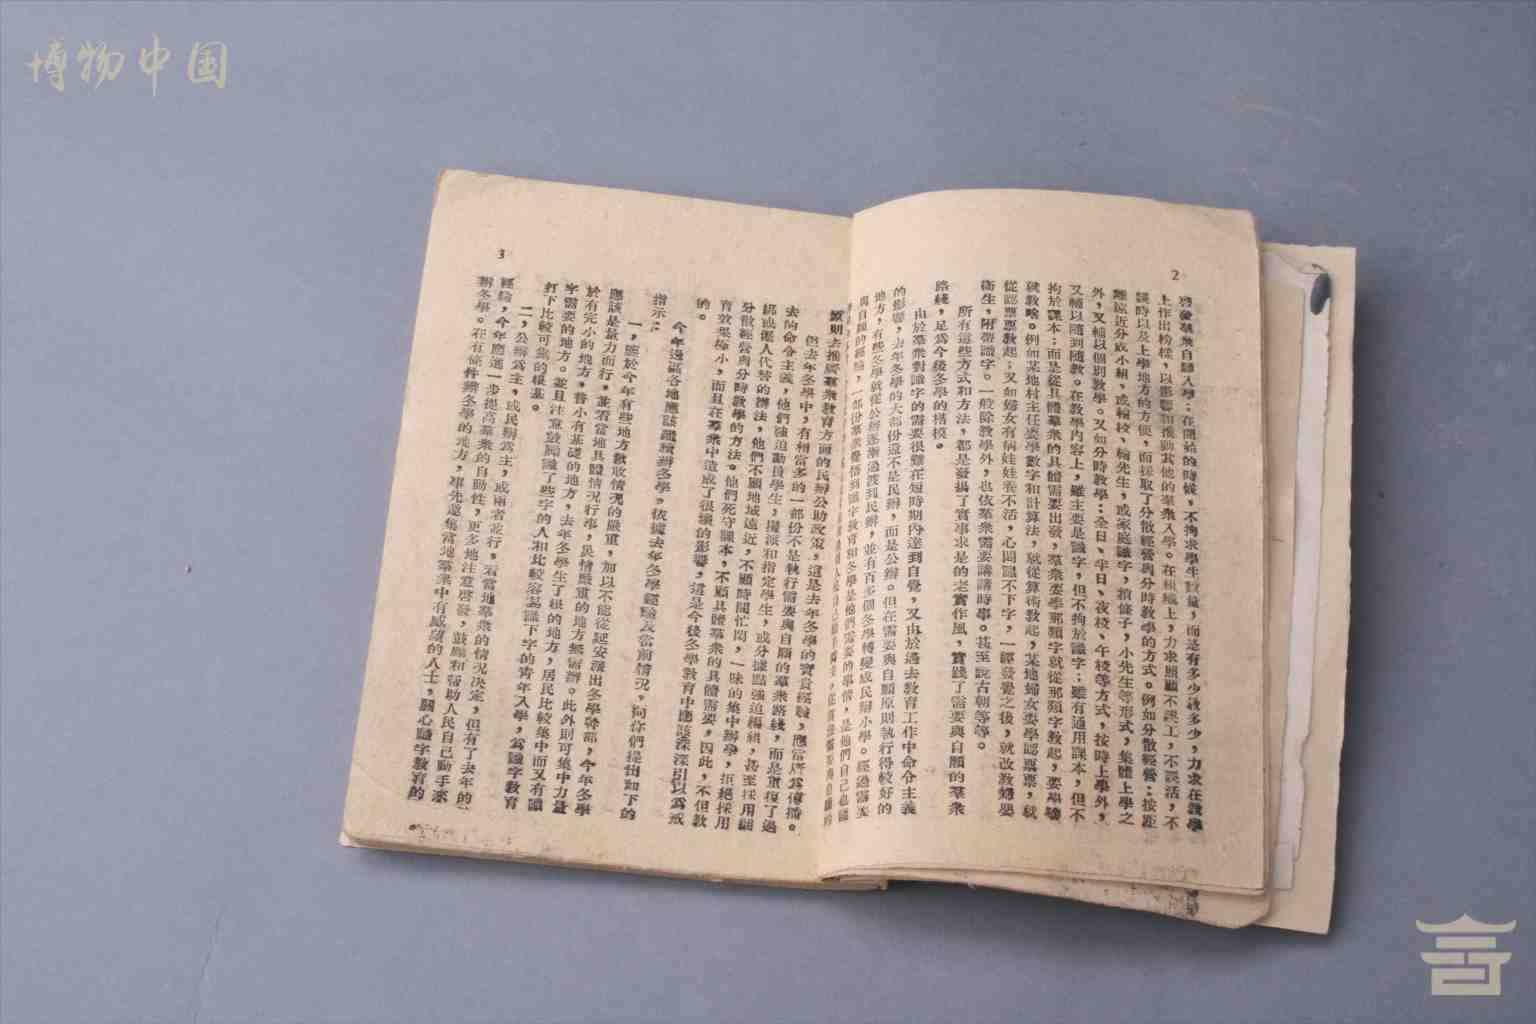 博物中国
2
啓發羣衆自願入學；在開始的時候，不拘求學生數量，而是有多少敎多少，力求在敎學
上作出榜樣，以影響和推動其他的羣衆入學。在組織上，力求照顧不誤工，不誤活，不
誤時以及上學地方的方便，而採取了分散經營與分時敎學的方式。例如分散經營：按距
離遠近分成小組，或輪校、輪先生，或家庭識字，捎條子，小先生等形式，集體上學之
外，又輔以個別敎學。又如分時敎學：全日、半日、夜校、午校等方式，按時上學外，
又輔以隨到隨敎。在敎學内容上，雖主要是識字，但不拘於識字；雖有通用課本，但不
拘於課本；而是從具體羣衆的具體需要出發，羣衆要學那類字就從那類字敎起，要學啥
就敎啥。例如某地村主任要學數字和計算法，就從算術敎起，某地婦女要學認票票，就
從認票票敎起；又如婦女有病娃娃養不活，心悶聽不下字，一經發覺之後，就改敎婦嬰
衛生，附帶識字。一般除敎學外，也依羣衆需要講講時事。甚至說古朝等等。
所有這些方式和方法，都是發揚了實事求是的老實作風，實踐了需要與自願的羣衆
路綫，足爲今後冬學的楷模。
由於羣衆對識字的需要很難在短時期内達到自覺，又由於過去敎育工作中命令主義
的影響，去年冬學的大部份還不是民辦，而是公辦。但在需要與自願原則執行得較好的
地方，有些冬學就從公辦逐漸過渡到民辦，並有百多個冬學轉變成民辦小學。經過需要
與自願的經驗，一部份羣衆覺悟到識字敎育和冬學是他們需要的事情，是他們自己也能
3
原則去推廣羣衆敎育方面的民辦公助政策，這是去年冬學的寶貴經驗，應當廣爲傳播。
但去年冬學中，有相當多的一部份不是執行需要與自願的羣衆路綫，而是重復了過
去的命令主義，他們強迫動員學生，攤派和指定學生，或分據點強迫編組，甚至採用捆
綁或僱人代替的辦法，他們不顧地域遠近，不顧時間忙閒，一味的集中辦學，拒絕採用
分散經營與分時敎學的方法。他們死守課本，不顧具體羣衆的具體需要，因此，不但敎
育效果極小，而且在羣衆中造成了很壞的影響，這是今後冬學敎育中應該深深引以爲戒
的。
今年邊區各地應該繼續辦冬學，依據去年冬學經驗及當前情况，向你們提出如下的
指示：
一，鑒於今年有些地方歉收情况的嚴重，加以不能從延安派出冬學幹部，今年冬學
應該是量力而行，並看當地具體情况行事，災情嚴重的地方無需辦。此外則可集中力量
於有完小的地方，普小有基礎的地方，去年冬學生了根的地方，居民比較集中而又有識
字需要的地方。並且注意鼓勵識了些字的人和比較容易識下字的青年入學，爲識字敎育
打下比較可靠的根基。
二，公辦爲主，或民辦爲主，或兩者並行，看當地羣衆的情况決定，但有了去年的
經驗，今年應進一步提高羣衆的自動性，更多地注意啓發，鼓勵和幫助人民自己動手來
辦冬學。在有條件辦冬學的地方，事先邀集當地羣衆中有威望的人士，關心識字敎育的